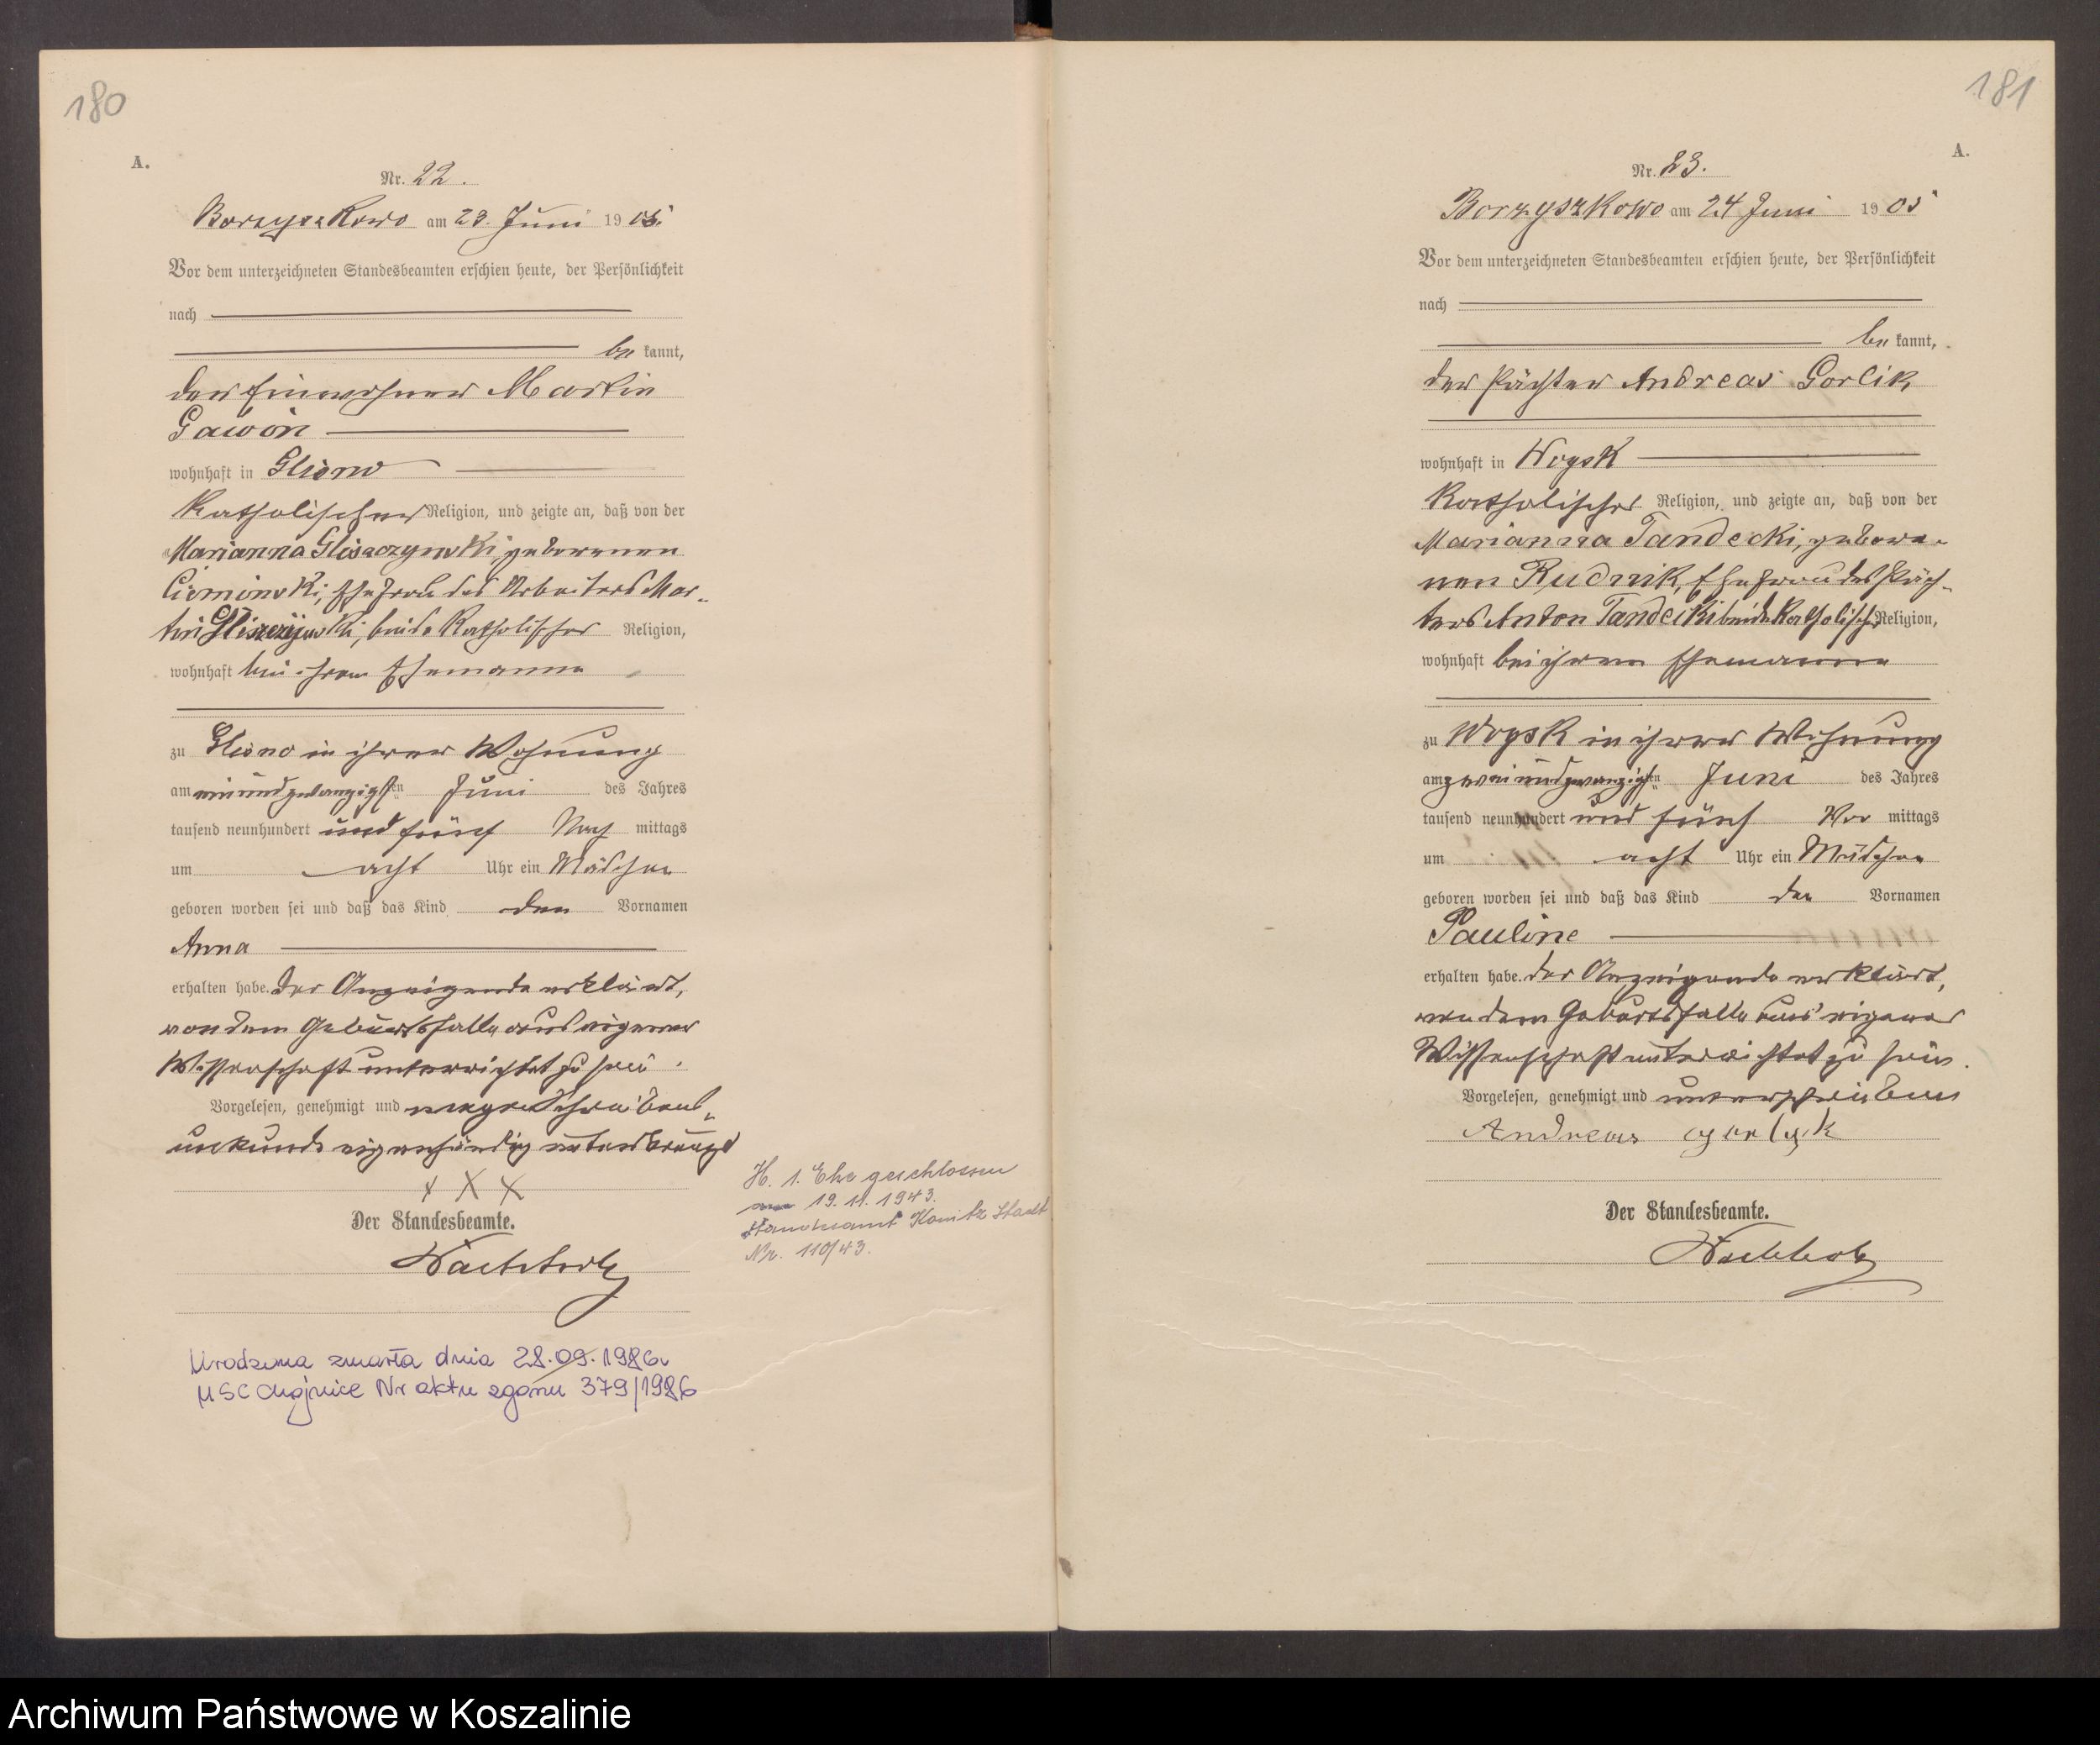 180
A.
Nr. 22.
Borzyszkowo am 23. Juni 1905.
Vor dem unterzeichneten Standesbeamten erschien heute, der Persönlichkeit
nach
be kannt,
der Einwohner Martin
Gawon
wohnhaft in Glisno
katholischer Religion, und zeigte an, daß von der
Marianna Glisczynski, geborenen
Cieminski, Ehefrau des Arbeiters Mar-
tin Glisczynski, beide katholischer Religion,
wohnhaft bei ihrem Ehemanne
zu Glisno in ihrer Wohnung
am einundzwanzigsten Juni des Jahres
tausend neunhundert und fünf Nach mittags
um acht Uhr ein Mädchen
geboren worden sei und daß das Kind den Vornamen
Anna
erhalten habe. Der Anzeigende erklärt,
von dem Geburtsfalle aus eigener
Wissenschaft unterrichtet zu sein.
Vorgelesen, genehmigt und wegen Schreibens-
unkunde eigenhändig unterkreuzt
x x x
Der Standesbeamte.
Wachholz
H. 1. Ehe geschlossen
am 19.11.1943.
Standesamt Konitz Stadt
Nr. 110/43.
Urodzona zmarła dnia 28.09.1986r
USC Chojnice Nr aktu zgonu 379/1986
181
A.
Nr. 23.
Borzyszkowo am 24 Juni 1905
Vor dem unterzeichneten Standesbeamten erschien heute, der Persönlichkeit
nach
be kannt,
der Pächter Andreas Gorlik
wohnhaft in Wogsk
katholischer Religion, und zeigte an, daß von der
Marianna Tandecki, gebore-
nen Rudnik, Ehefrau des Päch-
ters Anton Tandecki beide katholischer Religion,
wohnhaft bei ihrem Ehemanne
zu Wogsk in ihrer Wohnung
am zweiundzwanzigsten Juni des Jahres
tausend neunhundert und fünf Vor mittags
um acht Uhr ein Mädchen
geboren worden sei und daß das Kind den Vornamen
Pauline
erhalten habe. Der Anzeigende erklärt,
von dem Geburtsfalle aus eigener
Wissenschaft unterrichtet zu sein.
Vorgelesen, genehmigt und unterschrieben
Andreas Gorlyk
Der Standesbeamte.
Wachholz
Archiwum Państwowe w Koszalinie